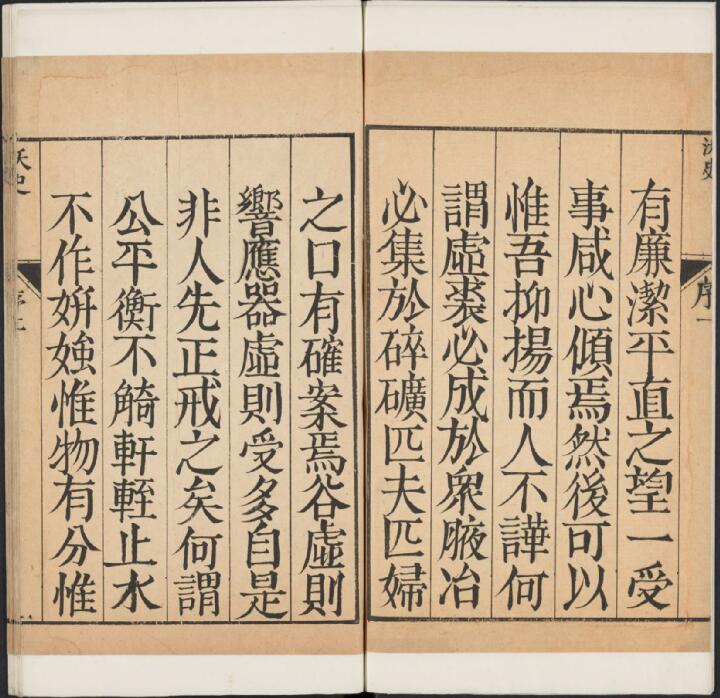 有廉潔平直之望一受
事咸心傾焉然後可以
惟吾抑揚而人不譁何
謂虛裘必成於衆腋冶
必集於碎礦匹夫匹婦
序一
之口有確案焉谷虛則
響應器虛則受多自是
非人先正戒之矣何謂
公平衡不觭軒輊止水
不作妍媸惟物有分惟